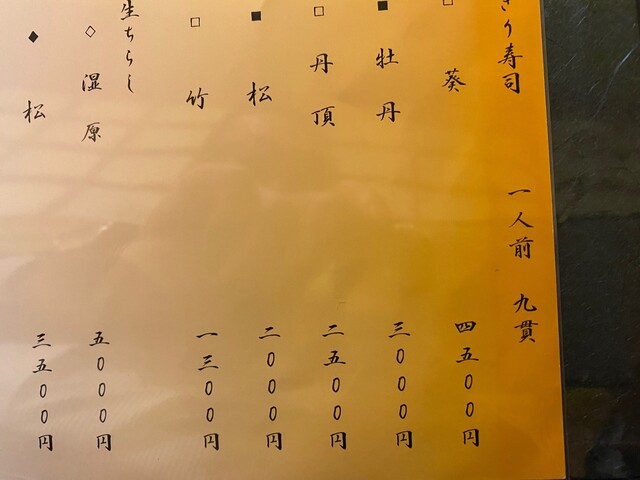 ぎり寿司 一人前 九貫
□ 葵 四五〇〇円
■ 牡丹 三〇〇〇円
□ 丹頂 二五〇〇円
■ 松 二〇〇〇円
□ 竹 一三〇〇円
生ちらし
◇ 湿原 五〇〇〇円
◆ 松 三五〇〇円